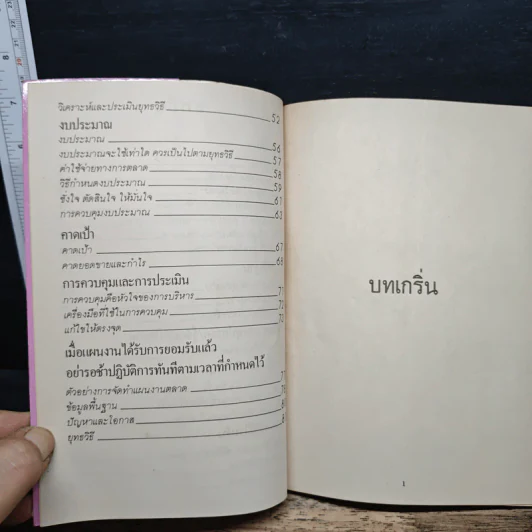 วิเคราะห์และประเมินยุทธวิธี 52
งบประมาณ
งบประมาณ 56
งบประมาณจะใช้เท่าใด ควรเป็นไปตามยุทธวิธี 57
ค่าใช้จ่ายทางการตลาด 58
วิธีกำหนดงบประมาณ 59
ชั่งใจ ตัดสินใจ ให้มั่นใจ 61
การควบคุมงบประมาณ 63
คาดเป้า
คาดเป้า 67
คาดยอดขายและกำไร 68
การควบคุมและการประเมิน
การควบคุมคือหัวใจของการบริหาร 71
เครื่องมือที่ใช้ในการควบคุม
แก้ไขให้ตรงจุด
เมื่อแผนงานได้รับการยอมรับแล้ว
อย่ารอช้าปฏิบัติการทันทีตามเวลาที่กำหนดไว้
ตัวอย่างการจัดทำแผนงานตลาด
ข้อมูลพื้นฐาน
ปัญหาและโอกาส
ยุทธวิธี
บทเกริ่น
1